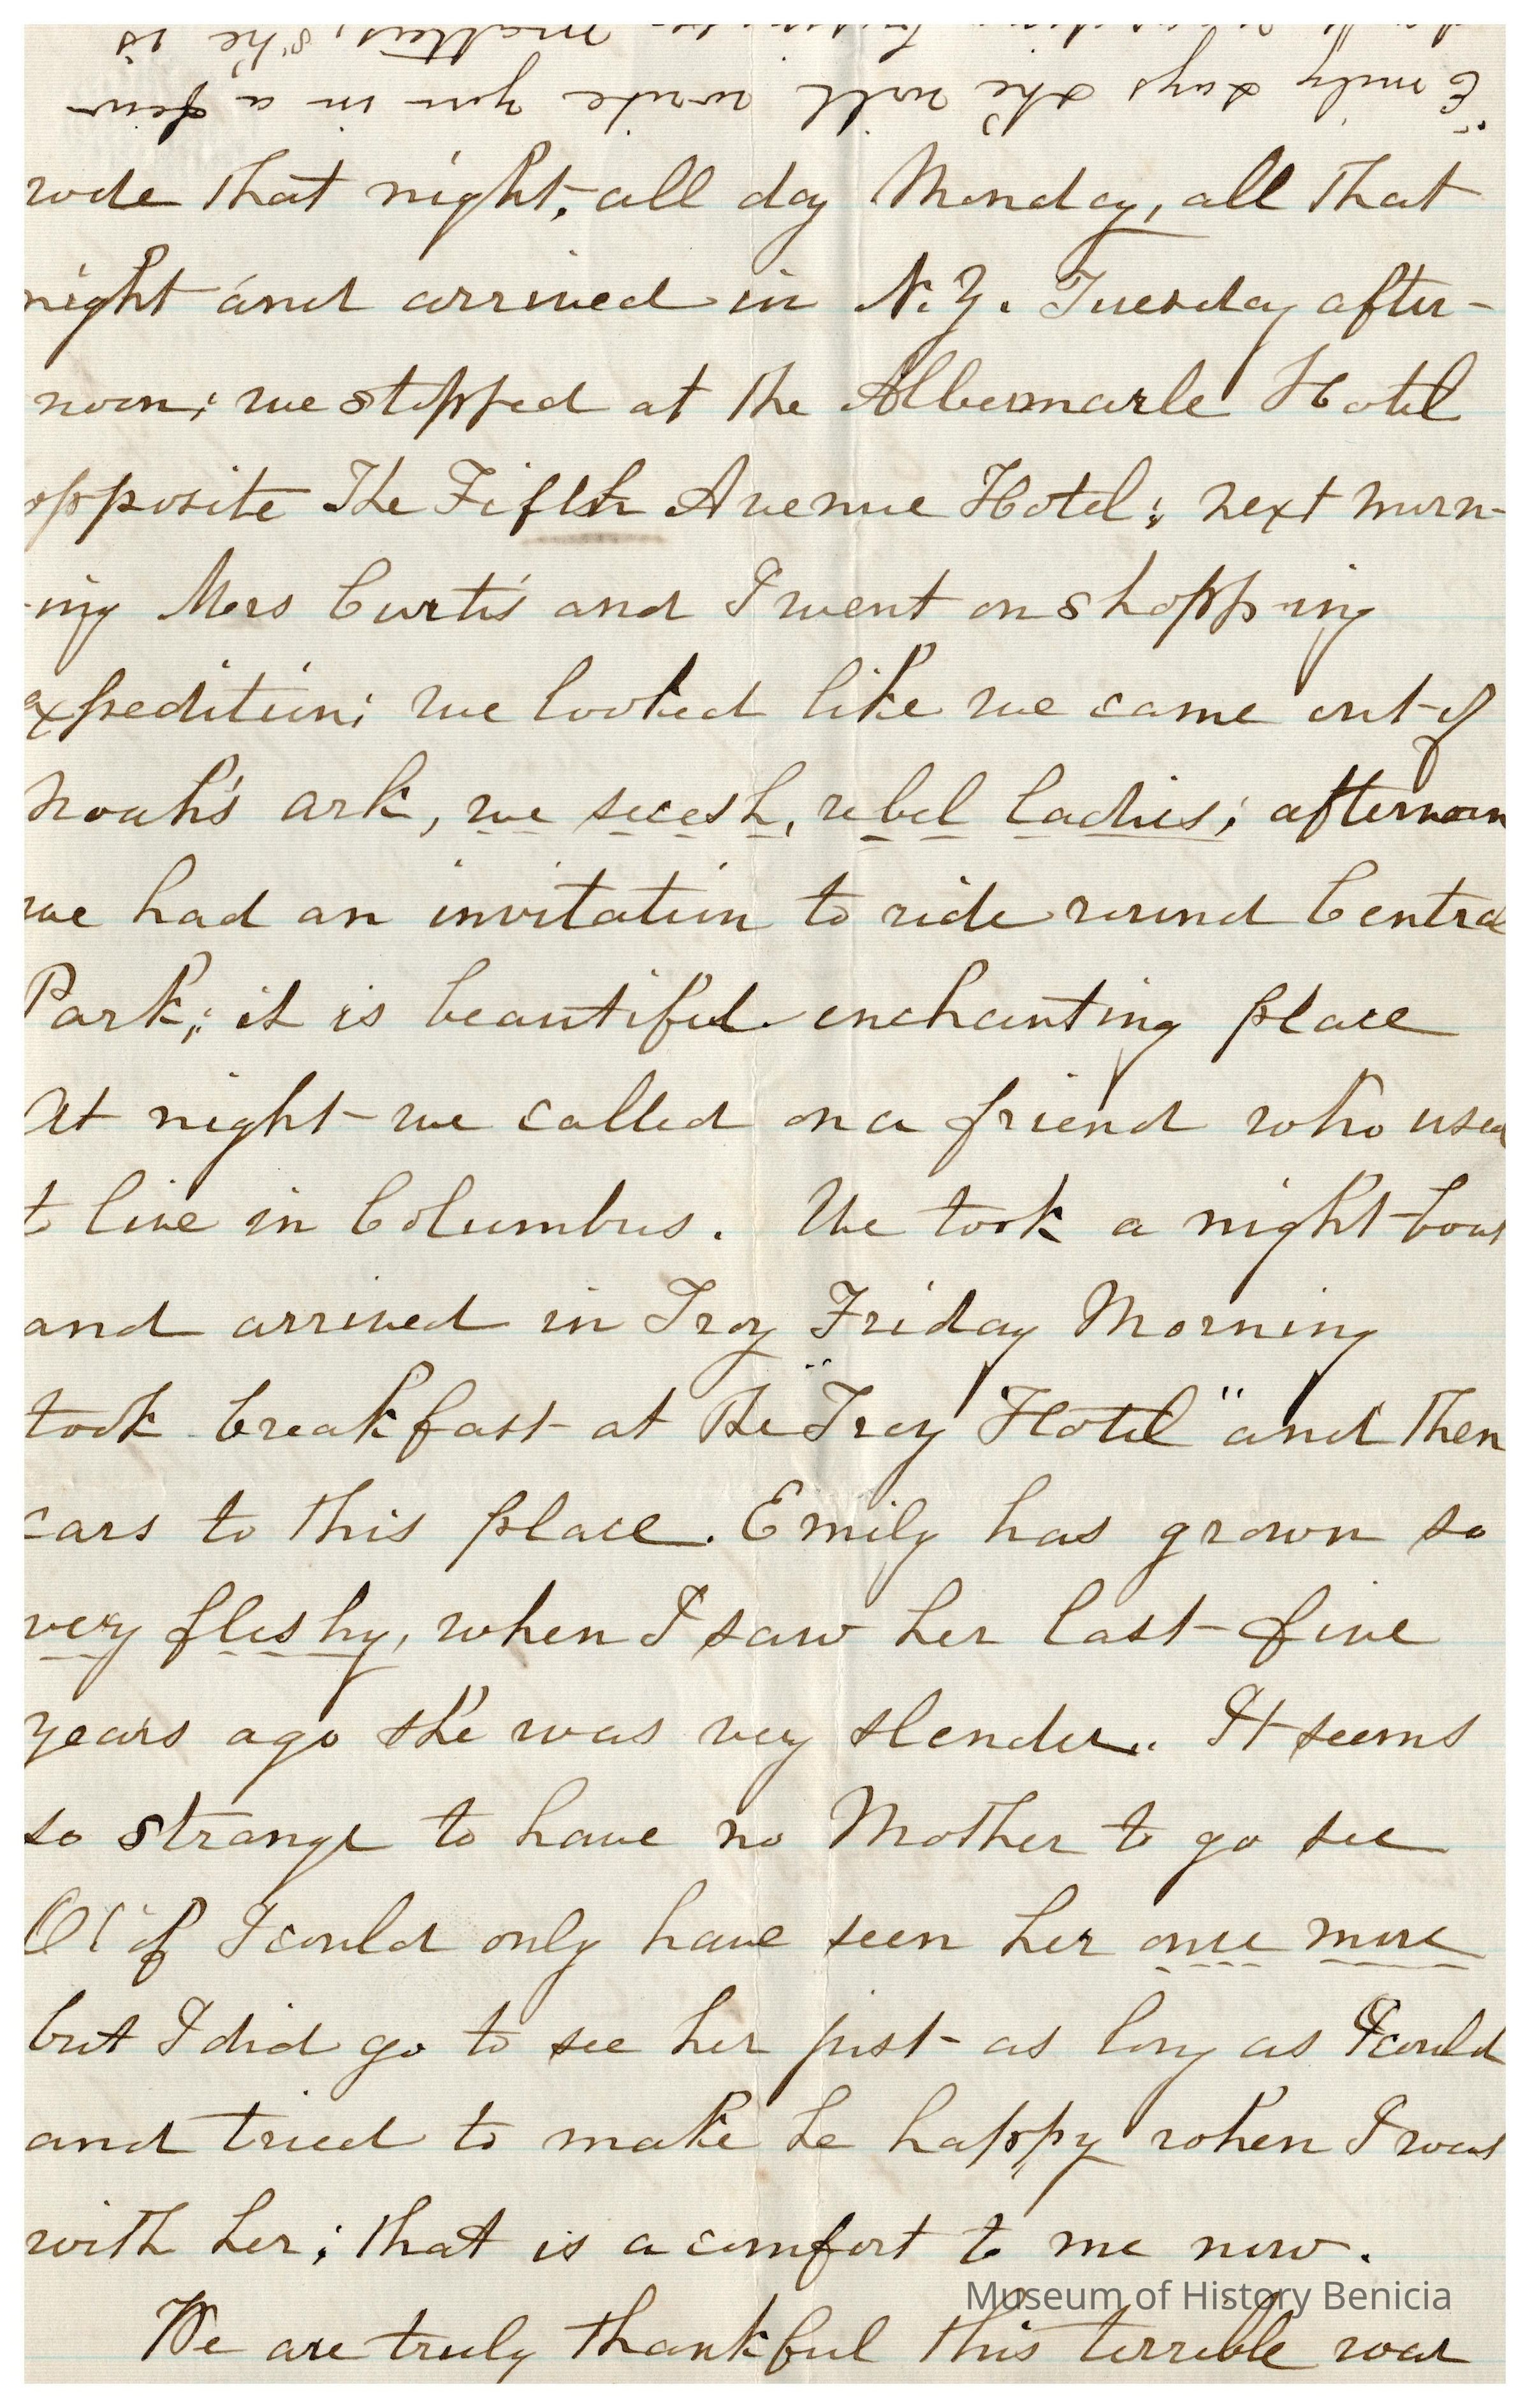 "Emily says she will write you in a few
matters, she is
rode that night, all day Monday, all that
night and arrived in N.Y. Tuesday after-
noon; we stopped at the Albermarle Hotel
opposite The Fifth Avenue Hotel; next morn-
-ing Mrs Curtis and I went on shopping
expedition; we looked like we came out of
Noah's ark, we secesh, rebel ladies; afternoon
we had an invitation to ride round Central
Park; it is beautiful enchanting place
At night we called on a friend who used
to live in Columbus. We took a night boat
and arrived in Troy Friday Morning
took breakfast at the "Troy Hotel" and then
cars to this place. Emily has grown so
very fleshy, when I saw her last five
years ago she was very slender. It seems
so strange to have no Mother to go see
O! if I could only have seen her once more
but I did go to see her just as long as I could
and tried to make he happy when I was
with her; that is a comfort to me now.
We are truly thankful this terrible war
Museum of History Benicia